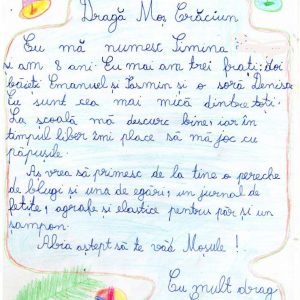 Dragă Moș Crăciun
Eu mă numesc Simina
și am 8 ani. Eu mai am trei frați: doi
băieți Emanuel și Iasmin și o soră Denisa.
Eu sunt cea mai mică dintre toți.
La școală mă descurc bine, iar în
timpul liber îmi place să mă joc cu
păpușile.
Aș vrea să primesc de la tine o pereche
de blugi și una de egări, un jurnal de
fetițe, agrafe și elastice pentru păr și un
șampon.
Abia aștept să te văd Moșule!
Cu mult drag